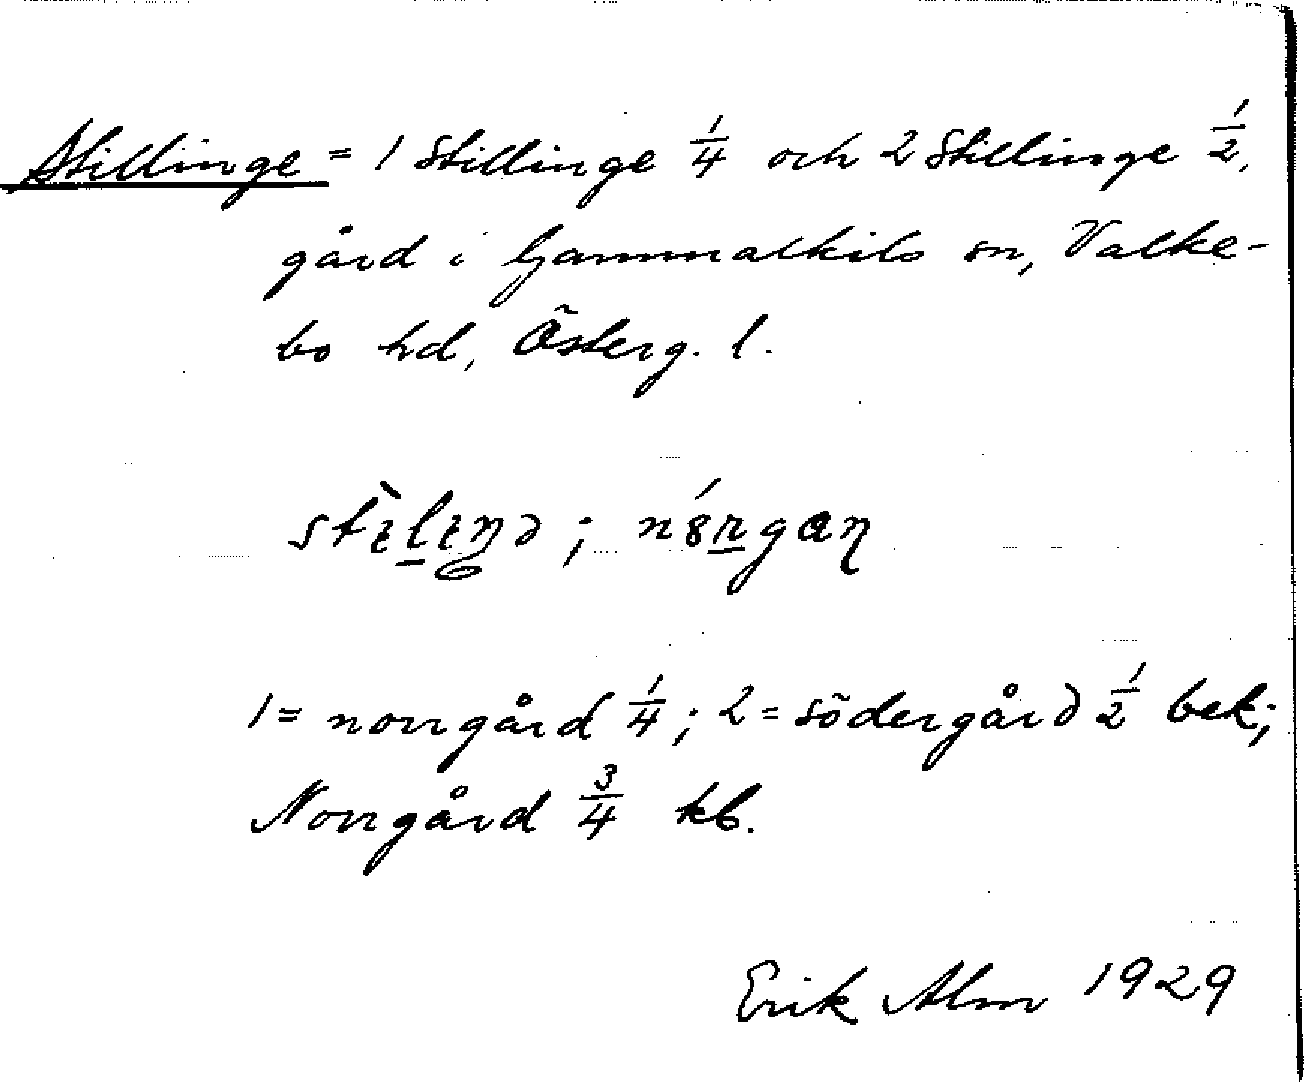 Stillinge = 1 Stillinge 1/4 och 2 Stillinge 1/2,
gård i Gammalkils sn, Valke-
bo hd, Österg. l.
1 = norrgård 1/4; 2 = södergård 1/2 bek;
Norrgård 3/4 kb.
Erik Alm 1929